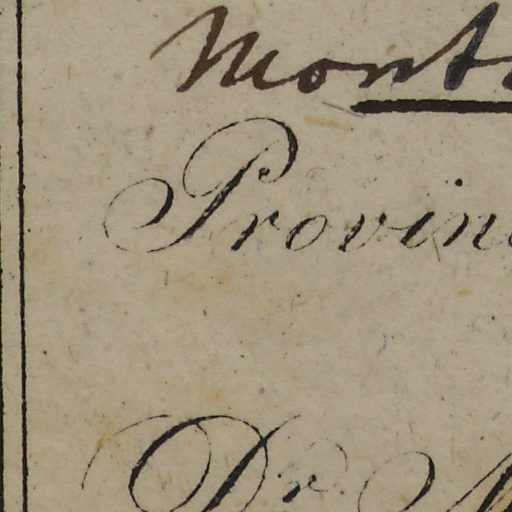 Mont
Provin
Dr.